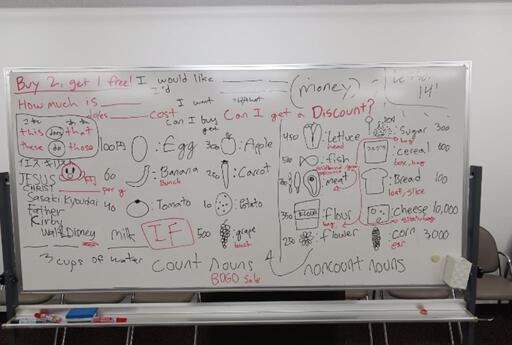 Buy 2, get 1 free! I would like
I'd
(money)
14'
How much is
does cost
I want
Can I buy
get
Can I get a Discount?
this does that
these do those
100円 : Egg
300 : Apple
450 : Lettuce
head
: Sugar 300
bag
イエス キリスト
JESUS
CHRIST
60 : Banana
Bunch
: Carrot
: fish
: cereal 600
box, bag
per g
: meat
: Bread 100
loaf, slice
Sasaki Kyoudai
Father
Kirby
Walt Disney
40 : Tomato
10 : Potato
350 : flour
bag
: Cheese 10,000
milk
IF
500 : grape
bunch
250 : flower
: corn 3000
ear
3 cups of water
Count nouns
noncount nouns
BOGO Sale